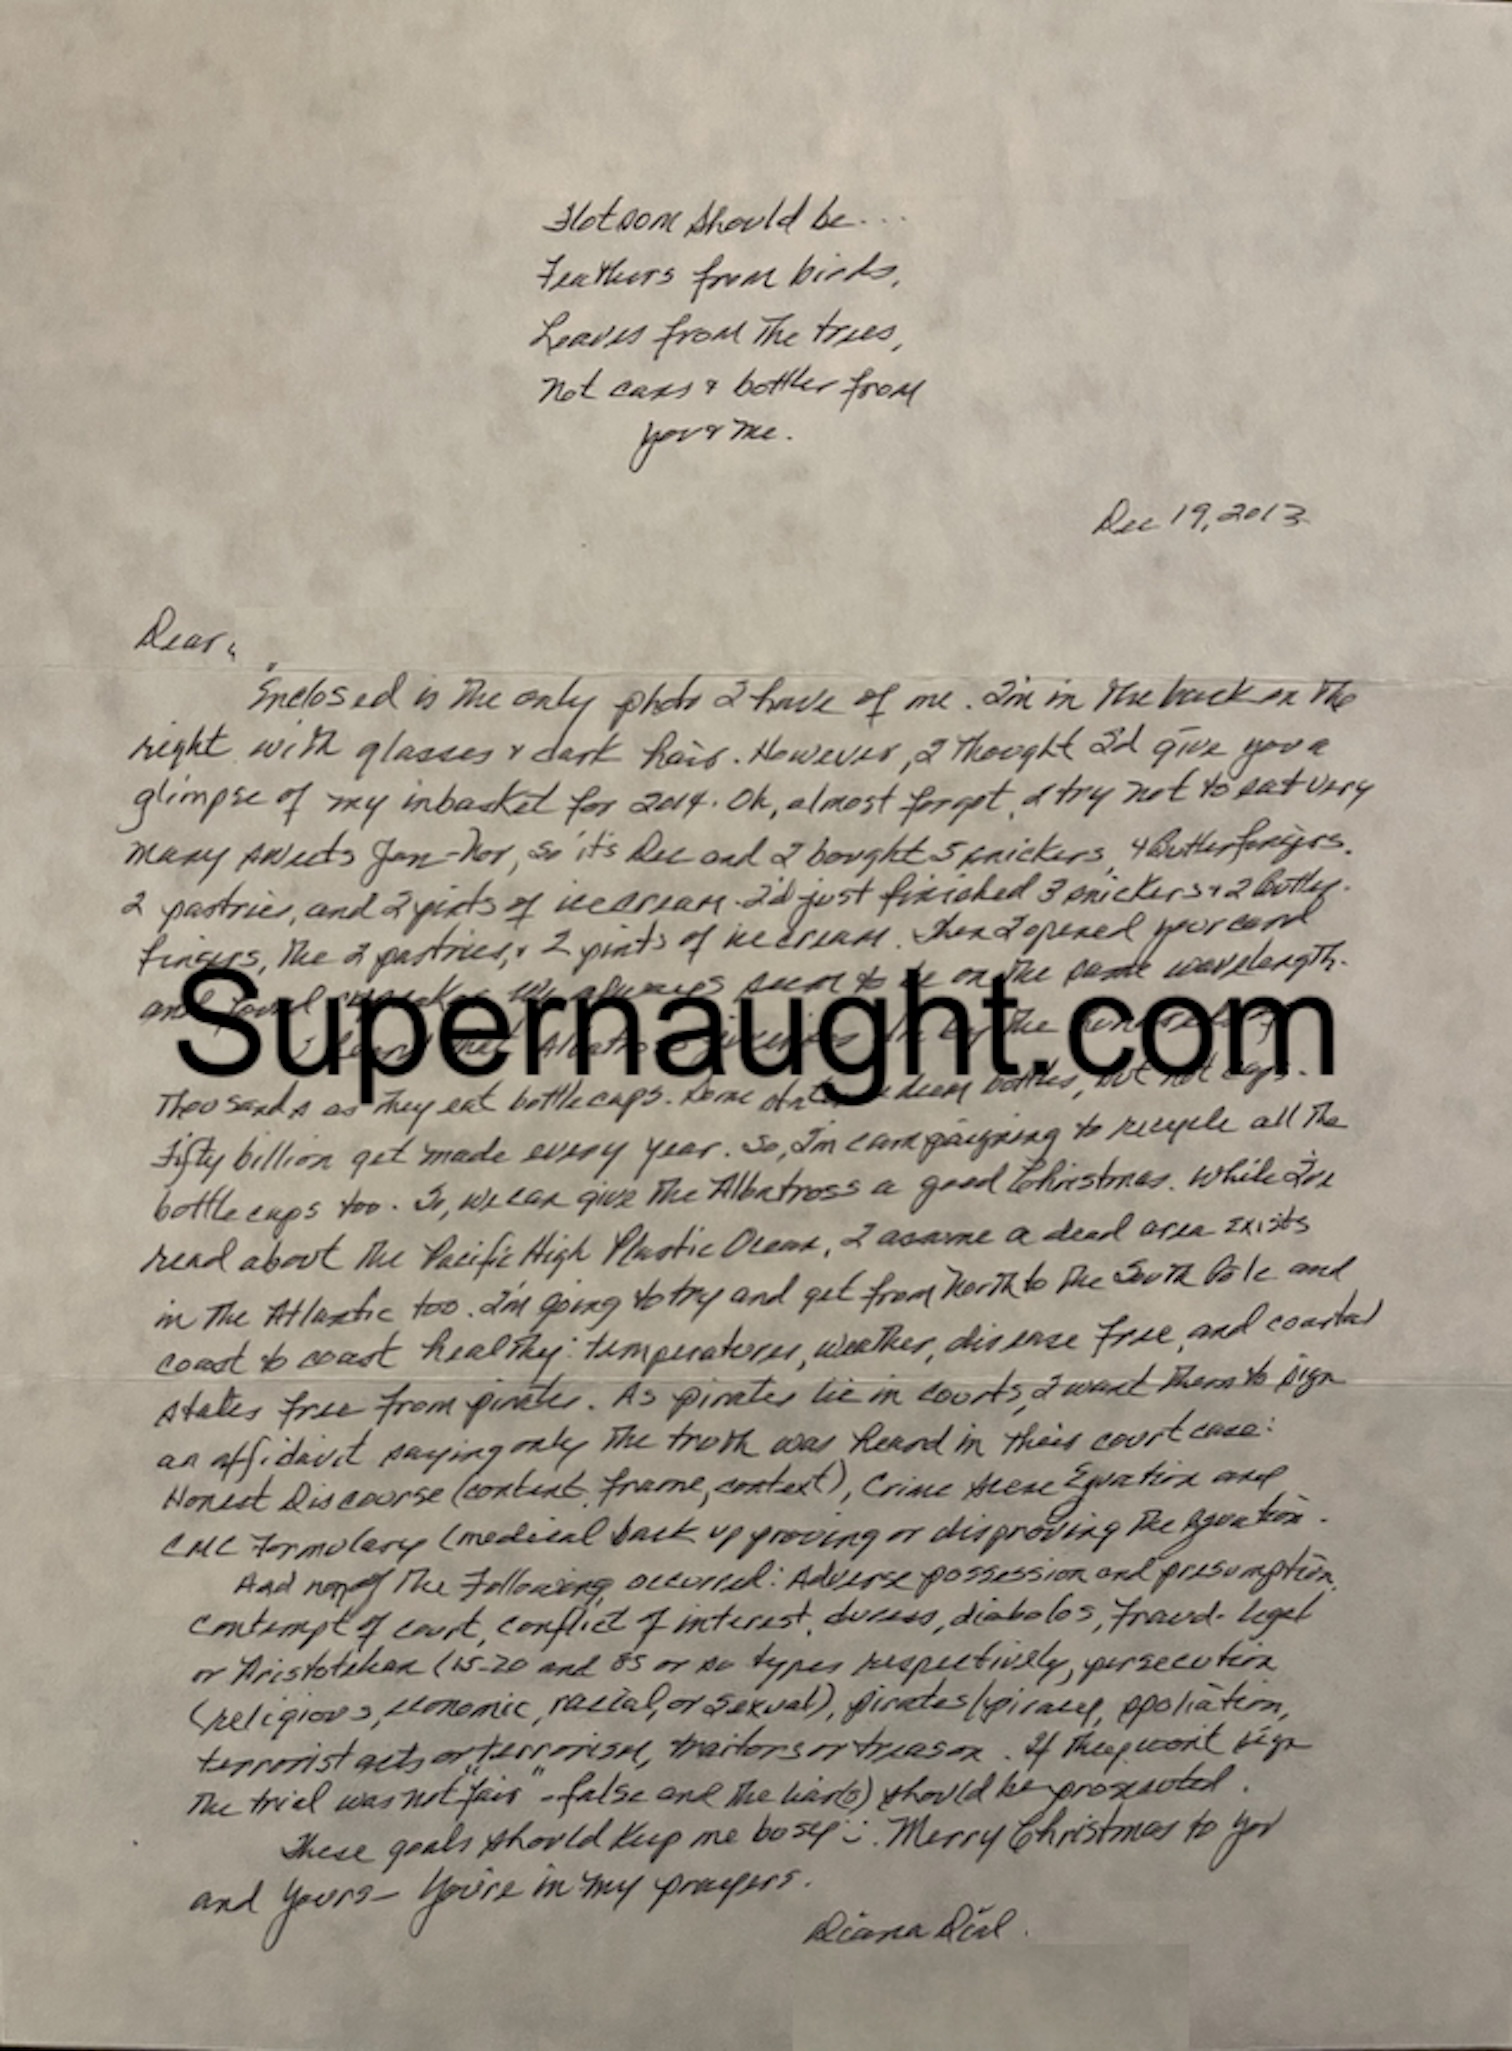 Flotsom should be...
Feathers from birds,
Leaves from the trees,
Not cans & bottles from
you & me.
Dec 19, 2013
Dear,
Enclosed is the only photo I have of me. I'm in the back on the
right with glasses & dark hair. However, I thought I'd give you a
glimpse of my inbasket for 2014. Oh, almost forgot, I try not to eat very
many sweets Jan-Nov, so it's Dec and I bought 5 snickers, 4 Butterfingers.
2 pastries, and 2 pints of icecream. I'd just finished 3 snickers & 2 Butter-
fingers, the 2 pastries, & 2 pints of icecream. Then I opened your card
and found We always seem to be on the same wavelength.
Supernaught.com
the
Thousands as they eat bottlecaps. Some redeem bottles, but not caps.
Fifty billion get made every year. So, I'm campaigning to recycle all the
bottlecaps too. So, we can give the Albatross a good Christmas. While I've
read about the Pacific High Plastic Ocean, I assume a dead area exists
in the Atlantic too. I'm going to try and get from North to the South Pole and
coast to coast healthy: temperatures, weather, disease free, and coastal
states free from pirates. As pirates lie in courts, I want them to sign
an affidavit saying only the truth was heard in their court case:
Honest Discourse (content, frame, context), Crime Scene Equation and
CMC Formulary (medical back up proving or disproving the Equation.
And non of the following occurred: Adverse possession and presumption,
contempt of court, conflict of interest, duress, diabolos, fraud-legal
or Aristotelian (15-20 and 85 or so types respectively, persecution
(religious, economic, racial, or sexual), pirates/piracy, spoliation,
terrorist acts or terrorism, traitors or treason. If they won't sign
the trial was not "fair" - false and the liar(s) should be prosecuted.
These goals should keep me busy :). Merry Christmas to you
and yours- You're in my prayers.
Diana Dial.